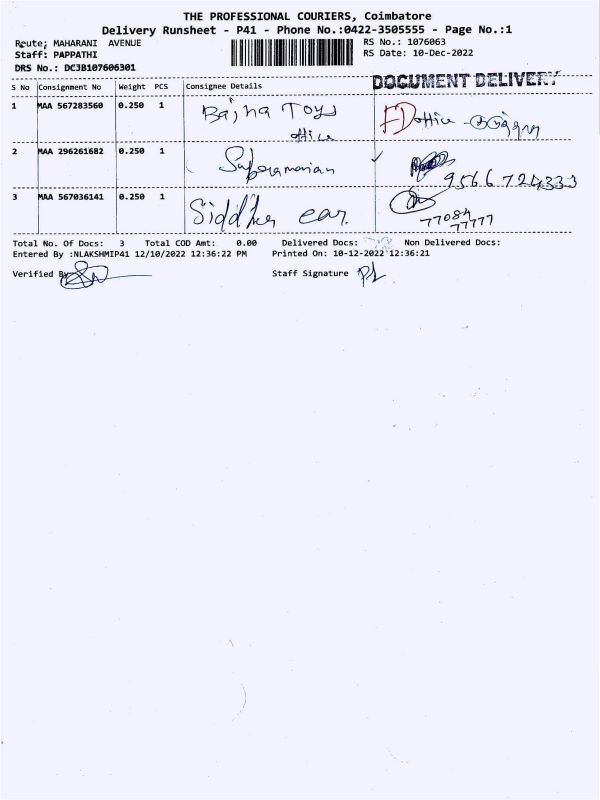 THE PROFESSIONAL COURIERS, Coimbatore
Delivery Runsheet - P41 - Phone No.:0422-3505555 - Page No.:1
Route; MAHARANI AVENUE RS No.: 1076063
Staff: PAPPATHI RS Date: 10-Dec-2022
DRS No.: DCJB107606301
DOCUMENT DELIVERY
S No Consignment No Weight PCS Consignee Details
1 MAA 567283560 0.250 1 Toys office
office
2 MAA 296261682 0.250 1 Subramanian
9566724333
3 MAA 567036141 0.250 1 Siddhu ear
77084
77777
Total No. Of Docs: 3 Total COD Amt: 0.00 Delivered Docs: Non Delivered Docs:
Entered By :NLAKSHMIP41 12/10/2022 12:36:22 PM Printed On: 10-12-2022 12:36:21
Verified By Staff Signature